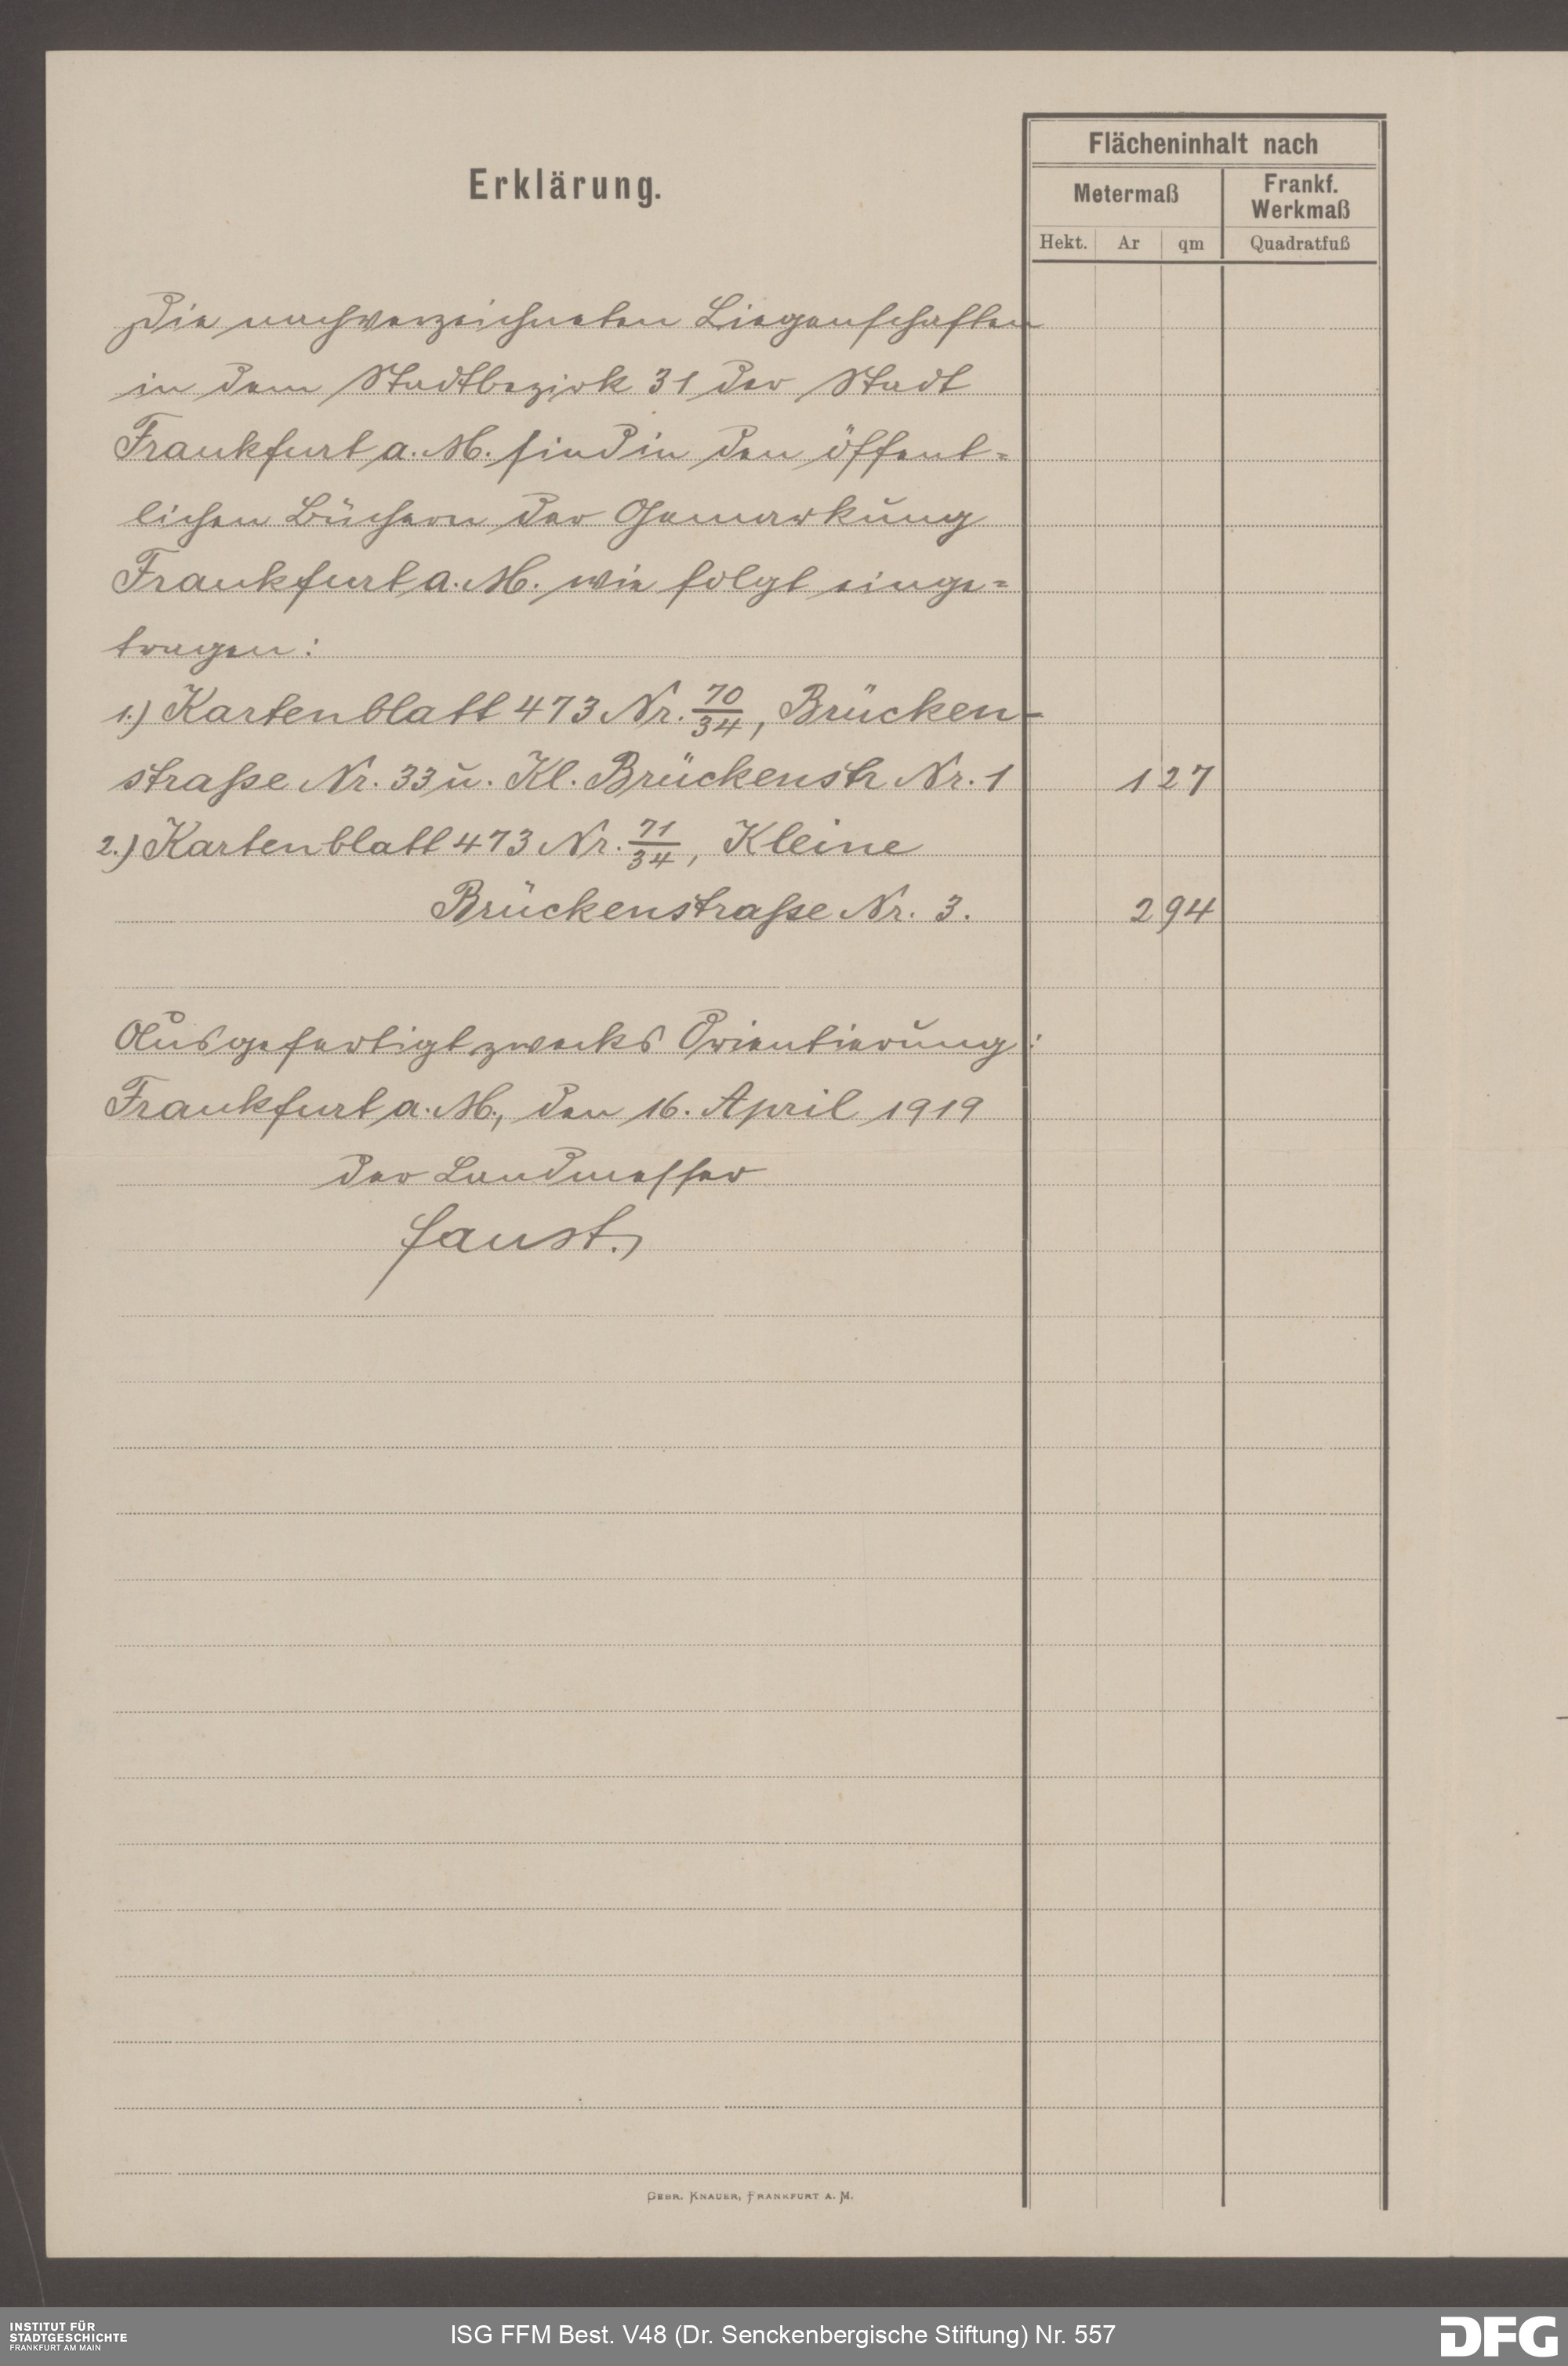 Erklärung.
Flächeninhalt nach
Metermaß
Frankf.
Werkmaß
Hekt. Ar qm Quadratfuß
Die nachverzeichneten Liegenschaften
in dem Stadtbezirk 31 der Stadt
Frankfurt a. M. sind in den öffent=
lichen Büchern der Gemarkung
Frankfurt a. M. wie folgt einge=
tragen:
1.) Kartenblatt 473 Nr. 70/34, Brücken-
straße Nr. 33 u. Kl. Brückenstr Nr. 1 1 27
2.) Kartenblatt 473 Nr. 71/34, Kleine
Brückenstraße Nr. 3. 2 94
Ausgefertigt zwecks Orientierung:
Frankfurt a. M., den 16. April 1919
Der Landmesser
Faust.
GEBR. KNAUER, FRANKFURT A. M.
INSTITUT FÜR
STADTGESCHICHTE
FRANKFURT AM MAIN
ISG FFM Best. V48 (Dr. Senckenbergische Stiftung) Nr. 557
DFG